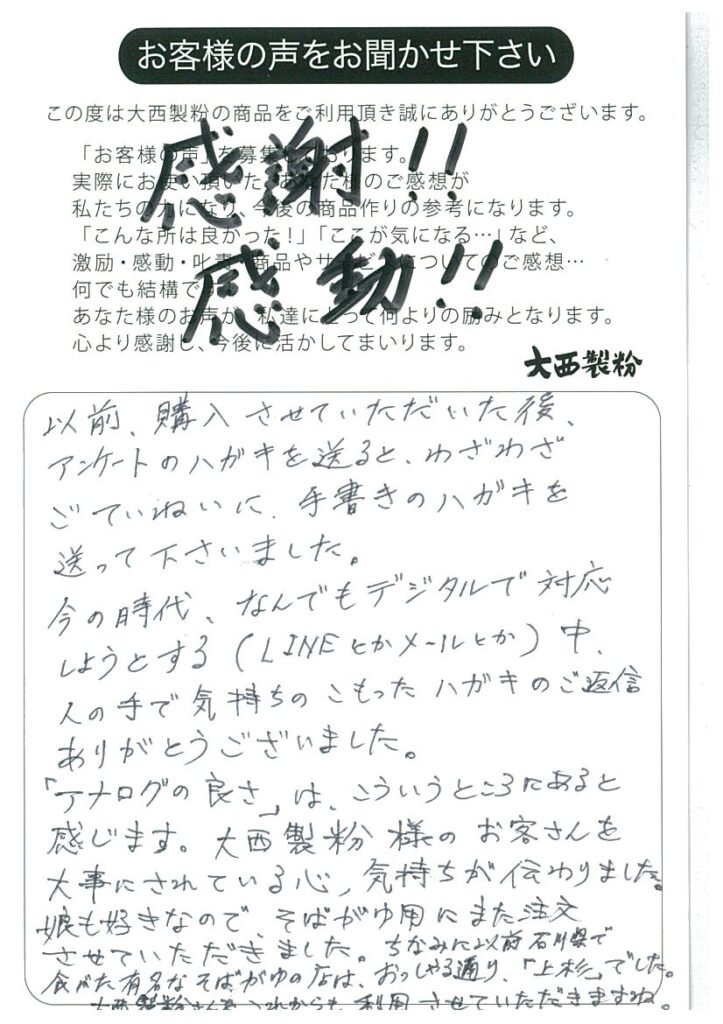 お客様の声をお聞かせ下さい
この度は大西製粉の商品をご利用頂き誠にありがとうございます。
「お客様の声」を募集しております。
実際にお使い頂いた、あなた様のご感想が
私たちの力になり、今後の商品作りの参考になります。
「こんな所は良かった！」「ここが気になる…」など、
激励・感動・叱責・商品やサービスについてのご感想…
何でも結構です。
あなた様のお声が、私達にとって何よりの励みとなります。
心より感謝し、今後に活かしてまいります。
感謝!!
感動!!
大西製粉
以前、購入させていただいた後、
アンケートのハガキを送ると、わざわざ
ごていねいに、手書きのハガキを
送って下さいました。
今の時代、なんでもデジタルで対応
しようとする(LINEとかメールとか)中、
人の手で気持ちのこもったハガキのご返信
ありがとうございました。
「アナログの良さ」は、こういうところにあると
感じます。大西製粉様のお客さんを
大事にされている心、気持ちが伝わりました。
娘も好きなので、そばがゆ用にまた注文
させていただきました。ちなみに以前石川県で
食べた有名なそばがゆの店は、おっしゃる通り、「上杉」でした。
大西製粉さんをこれからも利用させていただきますね。